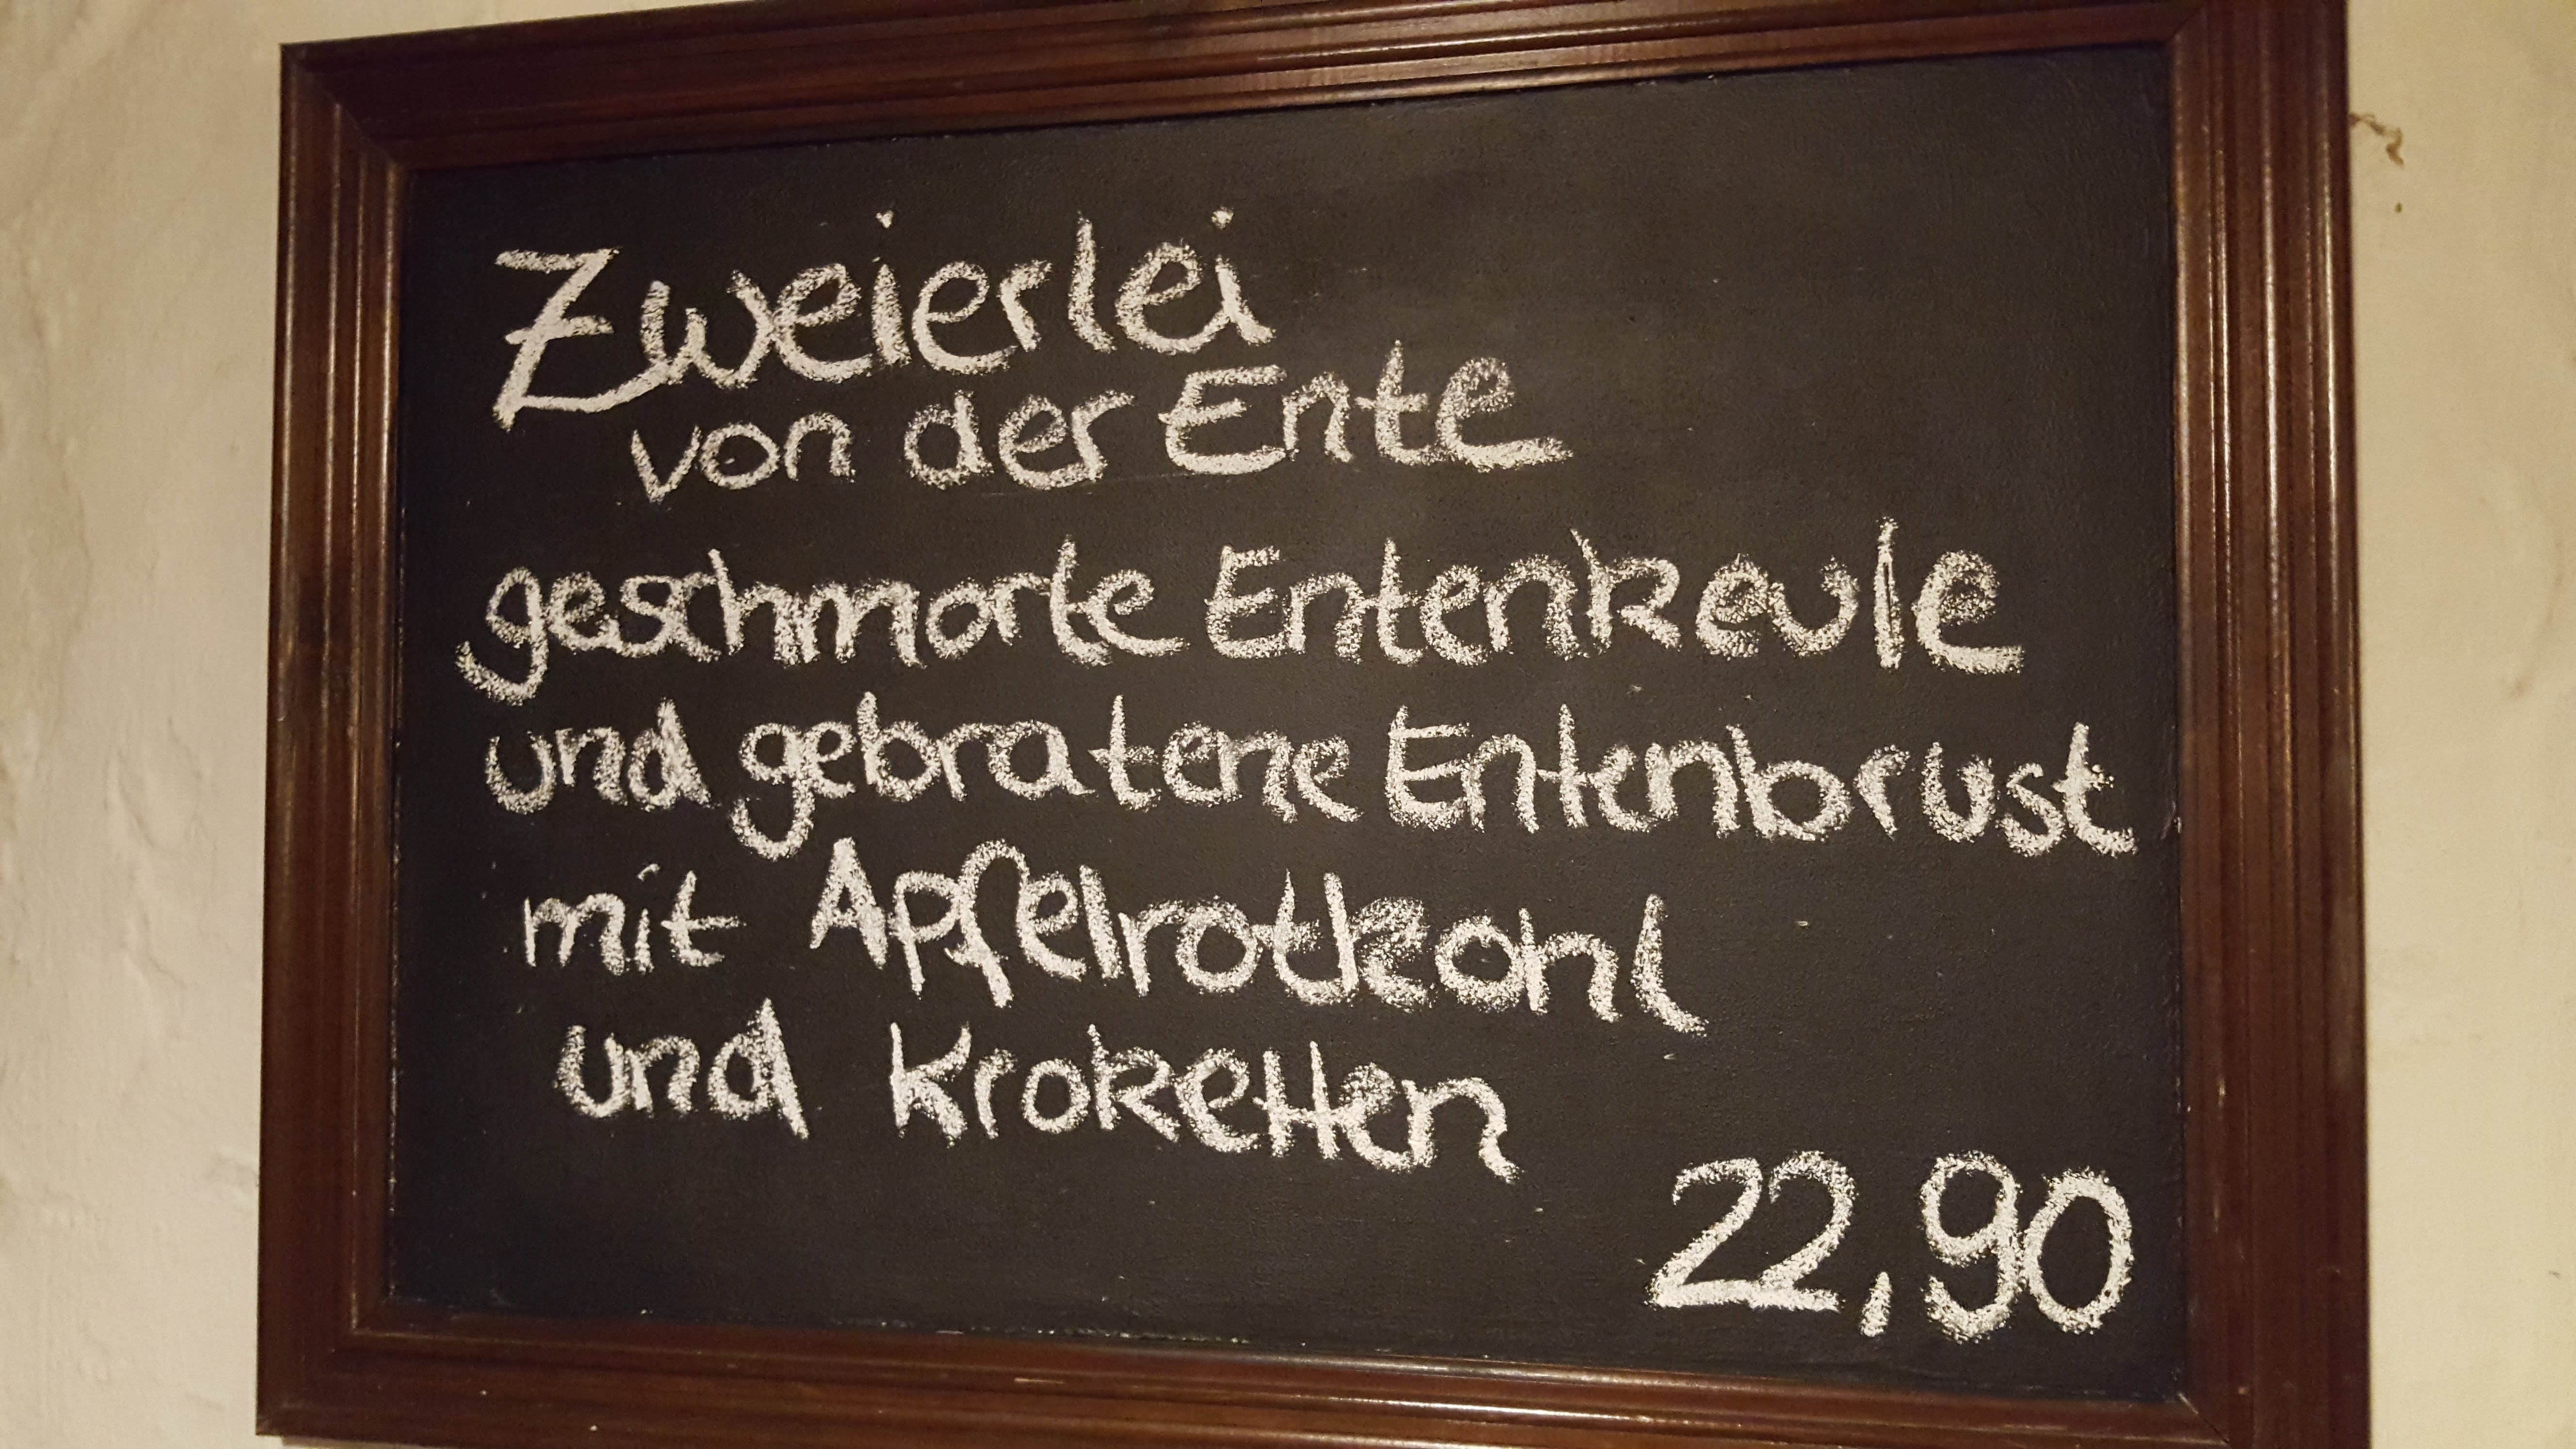 Zweierlei
von der Ente
geschmorte Entenkeule
und gebratene Entenbrust
mit Apfelrotkohl
und Kroketten
22,90